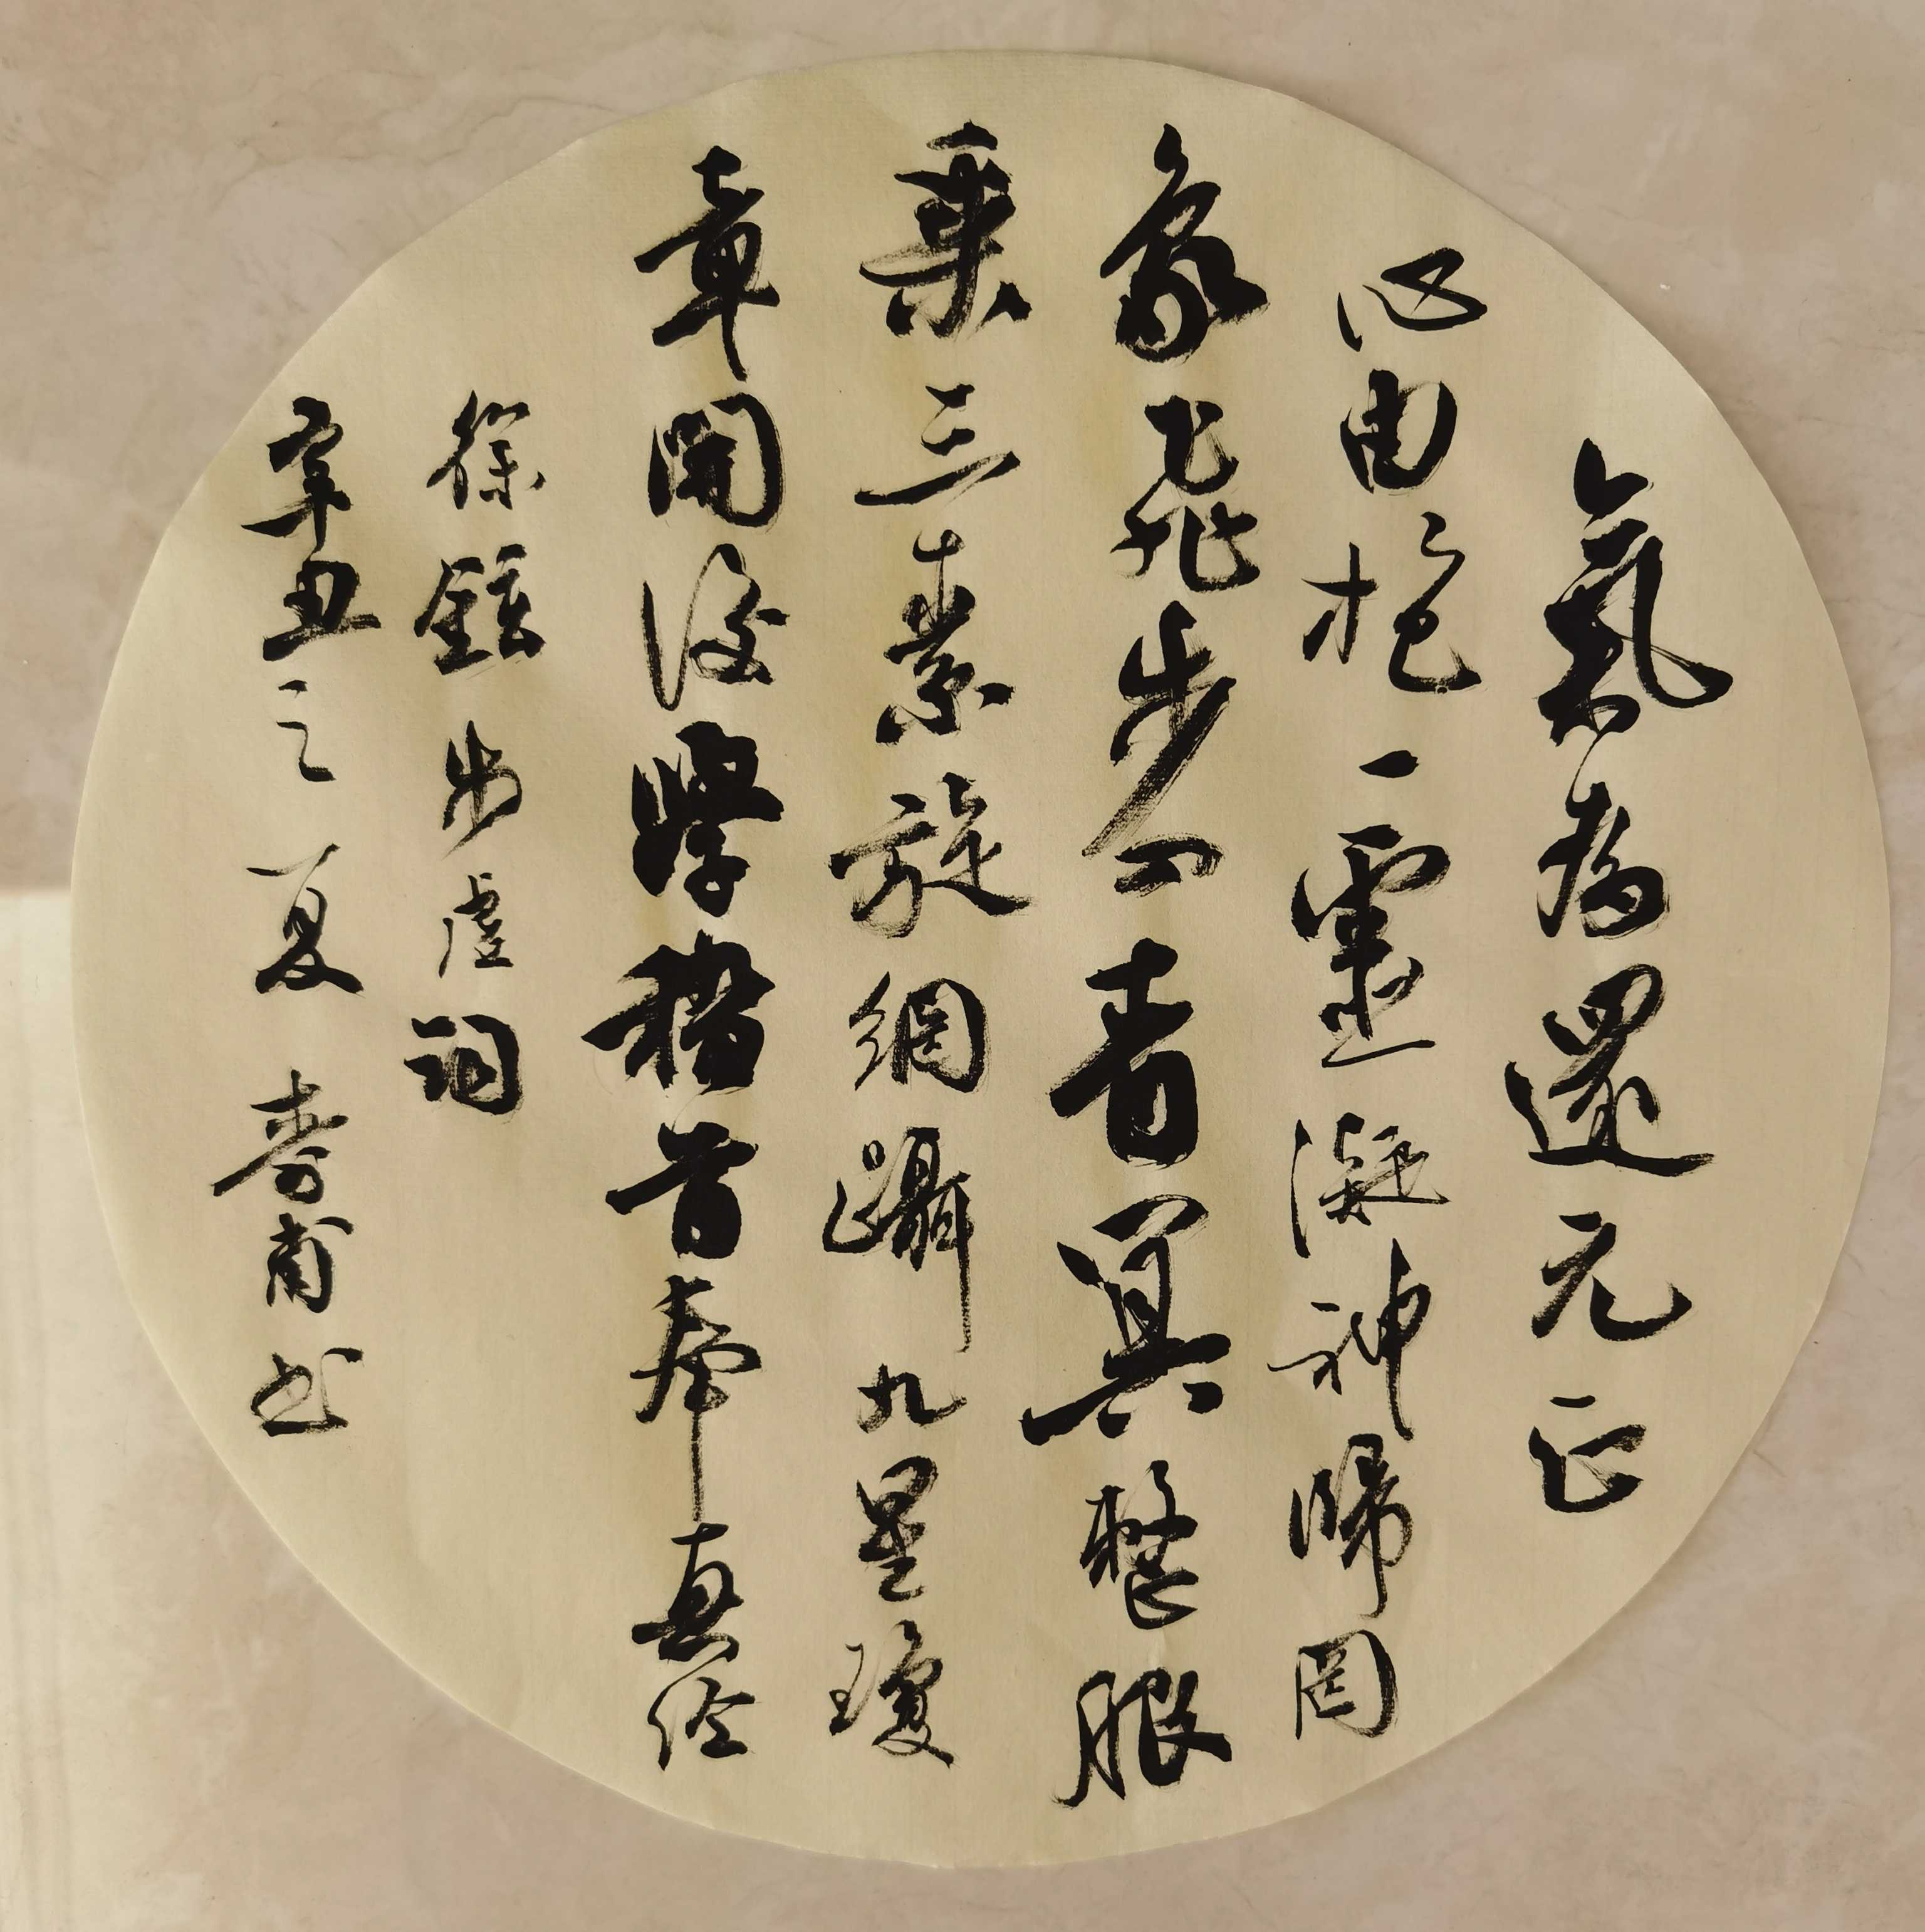 氣為還元正
心由抱一靈凝神歸罔
象飛步入青冥整服
乘三素旋綱躡九星瓊
章開後學稽首奉真經
徐鉉步虛詞
辛丑之夏 壽甫书